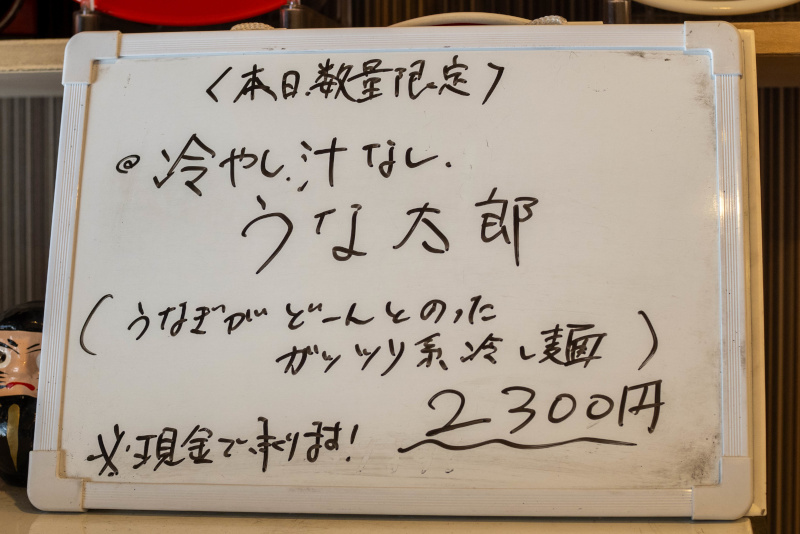 〈本日数量限定〉
◎冷やし汁なし.
うな太郎
(うなぎがどーんとのった
ガッツリ系冷し麺)
2300円
※現金で承ります!